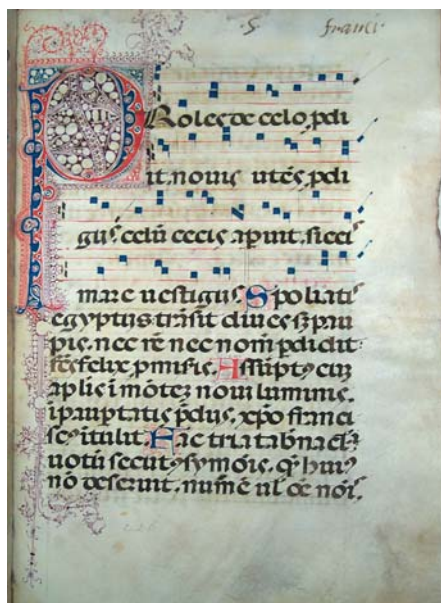 S. franci.
Roles de celo pdi
it. nouis utēs pdi
giis. celū cecis apiut. sicci
mare uestigiis. Spoliatis
egyptiis. trāsit diues sȝ pau
pie. nec rē nec nom̄ pdidit
fēs felix pmifis. Assūptꝯ cuȝ
aplis ī mōteȝ noui luminis.
ī pauptatis p̄dus. xp̄o franci
scꝯ ītulit. Hac tria tab̄nacla
uotū secutꝯ symōis. q̄ huiꝯ
nō deserunt. numē ul' oē nōis.